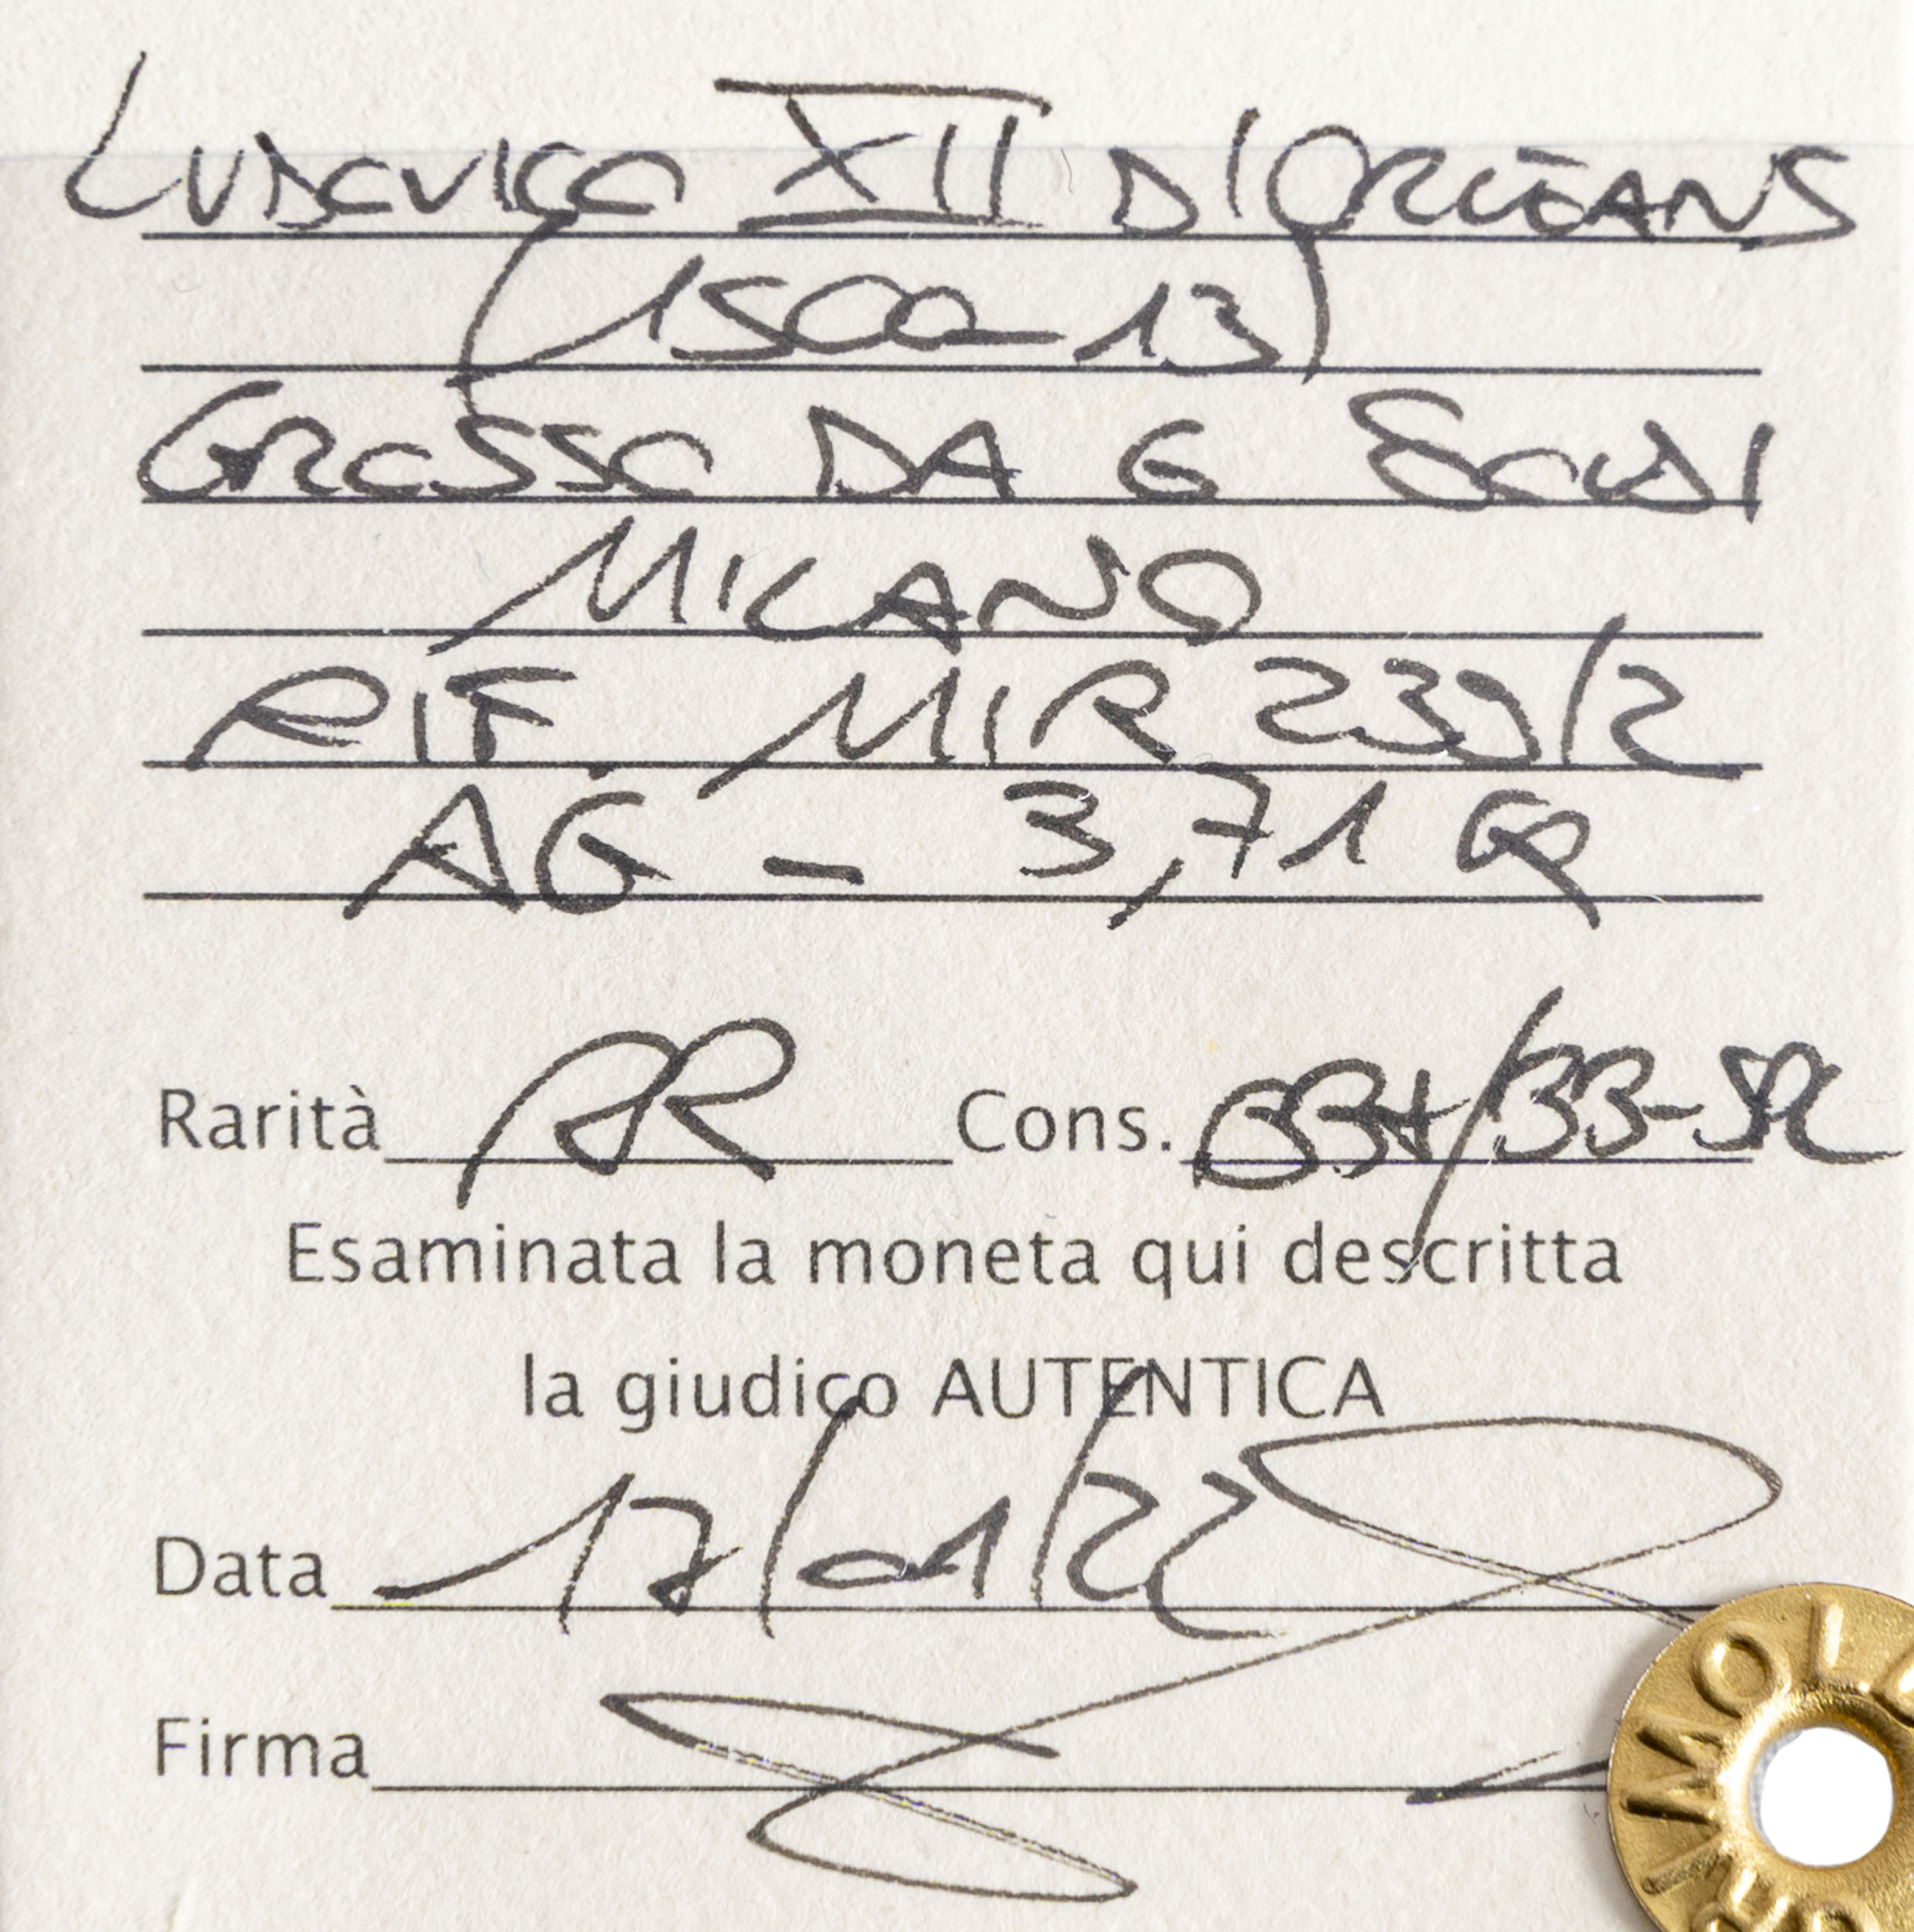 LUDOVICO XII D'ORLÉANS
(1500-13)
GROSSO DA 6 SOLDI
MILANO
RIF MIR 239/2
AG - 3,71 GR
Rarità RR Cons. BB+/BB-SPL
Esaminata la moneta qui descritta
la giudico AUTENTICA
Data 17/01/22
Firma